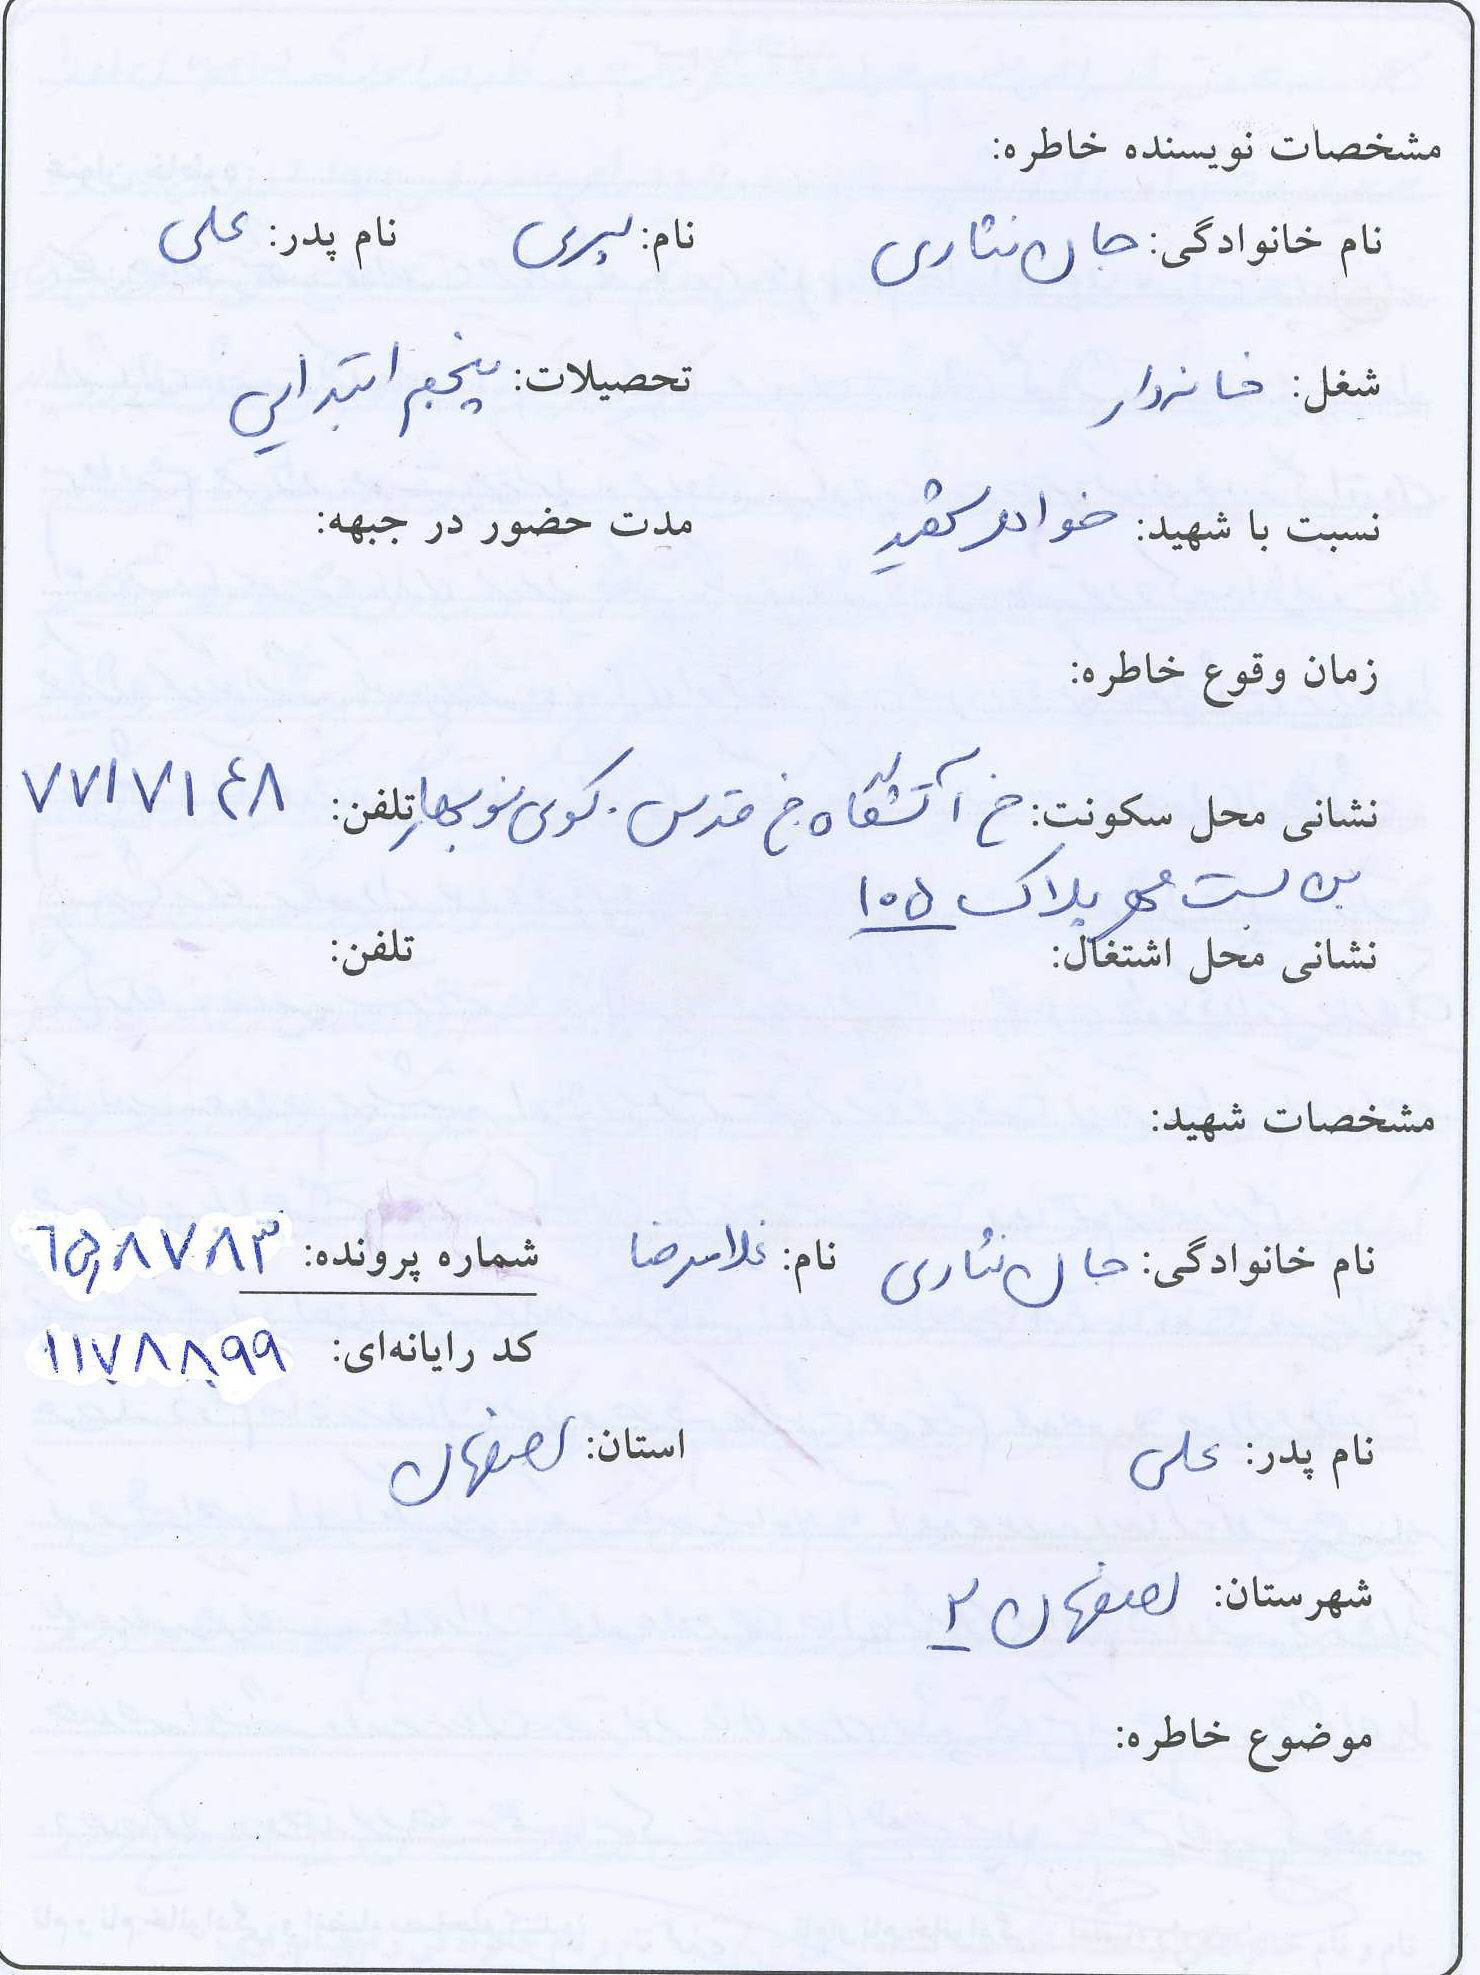 مشخصات نویسنده خاطره:
نام خانوادگی: جان نثاری نام: پری نام پدر: علی
شغل: خانه‌دار تحصیلات: پنجم ابتدایی
نسبت با شهید: خواهر شهید مدت حضور در جبهه:
زمان وقوع خاطره:
نشانی محل سکونت: خ آتشگاه خ قدس. کوی نوبهار تلفن: ۷۷۱۷۱۴۸
بن بست پلاک ۱۰۵
نشانی محل اشتغال: تلفن:
مشخصات شهید:
نام خانوادگی: جان نثاری نام: غلامرضا شماره پرونده: ۶۵۸۷۸۳
کد رایانه‌ای: ۱۱۷۸۸۹۹
نام پدر: علی استان: اصفهان
شهرستان: اصفهان ۲
موضوع خاطره: